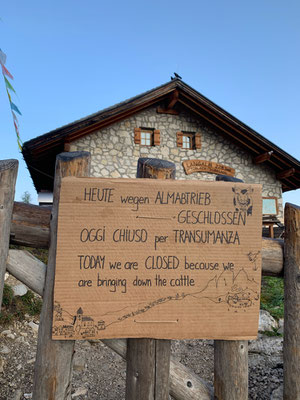 HEUTE wegen ALMABTRIEB
GESCHLOSSEN
OGGI CHIUSO per TRANSUMANZA
TODAY we are CLOSED because we
are bringing down the cattle